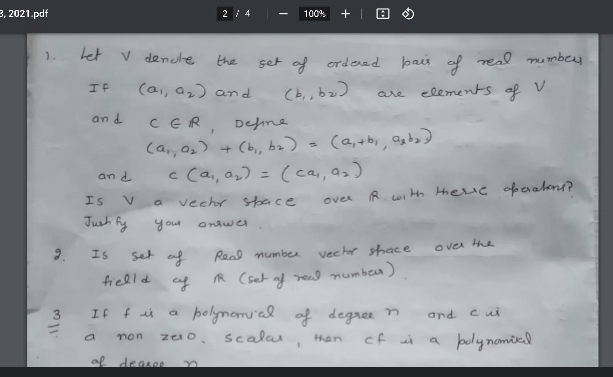 3, 2021.pdf
2 / 4
100%
1. Let V denote the set of ordered pair of real number
If (a1, a2) and (b1, b2) are elements of V
and c ∈ R, Define
(a1, a2) + (b1, b2) = (a1+b1, a2b2)
and c (a1, a2) = (ca1, a2)
Is V a vector space over R with these operations?
Justify your answer
2. Is set of Real number vector space over the
field of R (set of real numbers)
3 If f is a polynomial of degree n and c is
a non zero. scalar, then cf is a polynomial
of degree n